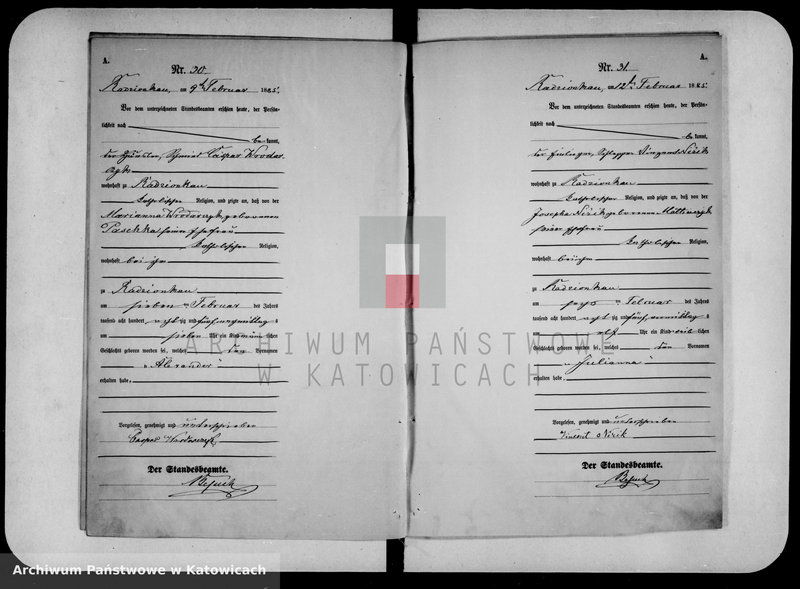 A.
Nr. 30
Radzionkau, am 9ten Februar 1885.
Vor dem unterzeichneten Standesbeamten erschien heute, der Persön-
lichkeit nach
be kannt,
der Häusler, Caspar Wrodar-
czyk
wohnhaft zu Radzionkau
katholischer Religion, und zeigte an, daß von der
Marianna Wrodarczyk geborenen
Paschka seiner Ehefrau
katholischer Religion,
wohnhaft bei ihm
zu Radzionkau
am sieben ten Februar des Jahres
tausend acht hundert acht zig und fünf nachmittag s
um sieben Uhr ein Kind männ lichen
Geschlechts geboren worden sei, welches den Vornamen
Alexander
erhalten habe.
Vorgelesen, genehmigt und unterschrieben
Caspar Wrodarczyk
Der Standesbeamte.
A.
Nr. 31.
Radzionkau, am 12ten Februar 1885.
Vor dem unterzeichneten Standesbeamten erschien heute, der Persön-
lichkeit nach
be kannt,
der Einlieger, Schlepper Vinzent Nizik
wohnhaft zu Radzionkau
katholischer Religion, und zeigte an, daß von der
Josepha Nizik geborenen
seiner Ehefrau
katholischer Religion,
wohnhaft bei ihm
zu Radzionkau
am sechs ten Februar des Jahres
tausend acht hundert acht zig und fünf vormittag s
um elf Uhr ein Kind weib lichen
Geschlechts geboren worden sei, welches den Vornamen
Julianna
erhalten habe.
Vorgelesen, genehmigt und unterschrieben
Vincent Nizik
Der Standesbeamte.
ARCHIWUM PAŃSTWOWE
W KATOWICACH
Archiwum Państwowe w Katowicach